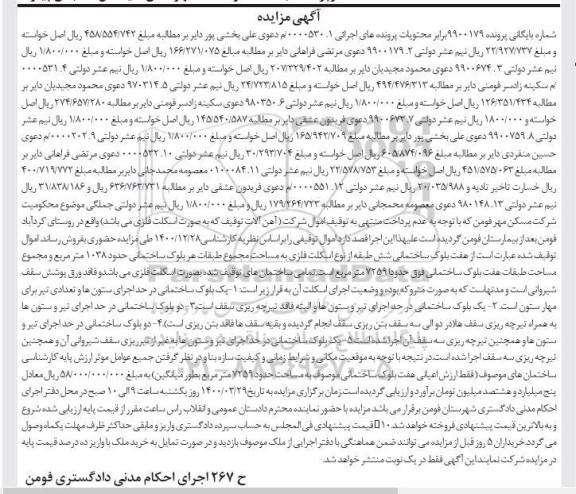 آگهی مزایده
شماره بایگانی پرونده ۹۹۰۰۱۷۹ برابر محتویات پرونده های اجرائی ۱. ۰۰۰۰۵۳۰/م دعوی علی بخشی پور دایر بر مطالبه مبلغ ۴۵۸/۵۵۴/۷۴۲ ریال اصل خواسته
و مبلغ ۲۲/۹۲۷/۷۳۷ ریال نیم عشر دولتی ۲. ۹۹۰۰۱۷۹ دعوی مرتضی فراهانی دایر بر مطالبه مبلغ ۱۶۶/۲۷۱/۰۷۵ ریال اصل خواسته و مبلغ ۱/۸۰۰/۰۰۰ ریال
نیم عشر دولتی ۳. ۹۹۰۰۶۷۴ دعوی محمود مجیدیان دایر بر مطالبه ۲۰۷/۳۲۹/۴۰۲ ریال اصل خواسته و مبلغ ۱/۸۰۰/۰۰۰ ریال نیم عشر دولتی ۴. ۰۰۰۰۵۳۱
/م سکینه زادسر فومنی دایر بر مطالبه ۴۹۴/۴۷۶/۳۱۳ ریال اصل خواسته و مبلغ ۲۴/۷۲۳/۸۱۵ ریال نیم عشر دولتی ۵. ۹۷۰۳۱۴ دعوی محمود مجیدیان دایر بر
مطالبه ۱۲۶/۳۵۱/۴۳۴ ریال اصل خواسته و مبلغ ۱/۸۰۰/۰۰۰ ریال نیم عشر دولتی ۶. ۹۸۰۳۵۰ دعوی سکینه زادسر فومنی دایر بر مطالبه ۲۷۴/۶۵۷/۲۸۰ ریال اصل
خواسته و ۱/۸۰۰۰۰۰ ریال نیم عشر دولتی ۷. ۹۹۰۰۶۷۲ دعوی فریدون عشقی دایر بر مطالبه ۱۴۵/۵۴۰/۵۸۷ ریال اصل خواسته و مبلغ ۱/۸۰۰/۰۰۰ ریال نیم عشر
دولتی ۸. ۹۹۰۰۷۵۹ دعوی علی بخشی پور دایر بر مطالبه مبلغ ۱۶۵/۹۴۲/۷۰۹ ریال اصل خواسته و مبلغ ۱/۸۰۰/۰۰۰ ریال نیم عشر دولتی ۹. ۰۰۰۰۲۰۲/م دعوی
حسین منفردی دایر بر مطالبه مبلغ ۶۰۵/۸۷۴/۰۹۶ ریال اصل خواسته و مبلغ ۳۰/۲۹۳/۷۰۴ ریال نیم عشر دولتی ۱۰. ۰۰۰۰۵۳۲ دعوی مرتضی فراهانی دایر بر
مطالبه مبلغ ۴۵۱/۵۷۵/۰۶۳ ریال اصل خواسته و مبلغ ۲۲/۵۷۸/۷۵۳ ریال نیم عشر دولتی ۱۱. ۰۱۰۰۰۸۴ معصومه محمدجانی دایر بر مطالبه مبلغ ۴۰۰/۷۱۹/۷۷۲
ریال خسارت تاخیر تادیه و ۲۰/۰۳۵/۹۸۸ ریال نیم عشر دولتی ۱۲. ۰۰۰۰۵۵۱/م دعوی فریدون عشقی دایر بر مطالبه ۶۳۶/۷۶۳/۷۳۱ ریال و ۳۱/۸۳۸/۱۸۶ ریال
نیم عشر دولتی ۱۳. ۹۸۰۱۴۸ دعوی معصومه محمجانی دایر بر مطالبه مبلغ ۱۷۹/۲۶۴/۷۲۳ ریال و مبلغ ۱/۸۰۰/۰۰۰ ریال نیم عشر دولتی جملگی موضوع محکومیت
شرکت مسکن مهر فومن که با توجه به عدم پرداخت منتهی به توقیف اموال شرکت ( آهن آلات توقیف که به صورت اسکلت فلزی می باشد) واقع در روستای کردآباد
فومن بعد از بیمارستان فومن گردیده است علیهذا این اجرا قصد دارد اموال توقیفی را بر اساس نظریه کارشناسی ۱۴۰۰/۱۲/۲۸ طی مزایده حضوری بفروش رساند اموال
توقیف شده عبارت است از هفت بلوک ساختمانی شش طبقه از نوع اسکلت فلزی به مساحت مجموع طبقات هر بلوک ساختمانی حدود ۱۰۳۸ متر مربع و مجموع
مساحت طبقات هفت بلوک ساختمانی فوق حدودا ۷۲۵۹ متر مربع است تمامی ساختمان های توقیف شده بصورت اسکلت فلزی می باشد و فاقد ورق پوشش سقف
شیروانی است و مدتهاست که به صورت متروکه بوده و وضعیت اجرای اسکلت آن به قرار زیر است: ۱- یک بلوک ساختمانی در حد اجرای ستون ها و تعدادی تیر برای
مهار ستون است. ۲- یک بلوک ساختمانی در حد اجرای تیر و ستون ها و البته فاقد تیرچه ریزی سقف است ۳- دو بلوک ساختمانی در حد اجرای تیر و ستون ها
به همراه تیرچه ریزی سقف ها(در دو الی سه سقف بتن ریزی سقف انجام گردیده و بقیه سقف ها فاقد بتن ریزی است) ۴- دو بلوک ساختمانی در حد اجرای تیر و
ستون ها و همچنین تیرچه ریزی سه سقف آن اجرا شده است ۵- یک بلوک ساختمانی در حد اجرای تیر و ستون ها به غیر از تیرریزی سقف شیروانی آن و همچنین
تیرچه ریزی سه سقف اجرا شده است. در نتیجه با توجه به موقعیت مکانی و شرایط زمانی و کیفیت سازه بنا و در نظر گرفتن جمیع عوامل موثر ارزش پایه کارشناسی
ساختمان های موصوف ( فقط ارزش اعیانی هفت بلوک ساختمانی موصوف به مساحت حدودا ۷۲۵۹ متر مربع بطور میانگین) به مبلغ ۵۸/۰۰۰/۰۰۰/۰۰۰ ریال معادل
پنج میلیارد و هشتصد میلیون تومان برآورد و ارزیابی گردیده است. زمان برگزاری مزایده به تاریخ ۱۴۰۰/۰۳/۲۹ روز یکشنبه ساعت ۹ الی ۱۰ صبح در محل دفتر اجرای
احکام مدنی دادگستری شهرستان فومن برقرار می باشد مزایده با حضور نماینده محترم دادستان عمومی و انقلاب راس ساعت مقرر از قیمت پایه ارزیابی شده شروع
و به بالاترین قیمت پیشنهادی فروخته خواهد شد. ۱۰٪ قیمت پیشنهادی فی المجلس به حساب سپرده دادگستری واریز و مابقی حداکثر ظرف مهلت یکماه وصول
می گردد. خریداران ۵ روز قبل از مزایده می توانند ضمن هماهنگی با دفتر اجرایی از ملک موصوف بازدید و در صورت تمایل به خرید ملک با واریز ده درصد قیمت پایه
در مزایده شرکت نمایند این آگهی فقط در یک نوبت منتشر خواهد شد.
ح ۲۶۷ اجرای احکام مدنی دادگستری فومن